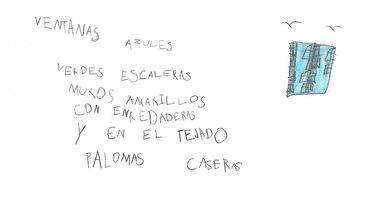 VENTANAS
AZULES
VERDES ESCALERAS
MUROS AMARILLOS
CON ENREDADERAS
Y EN EL TEJADO
PALOMAS CASERAS